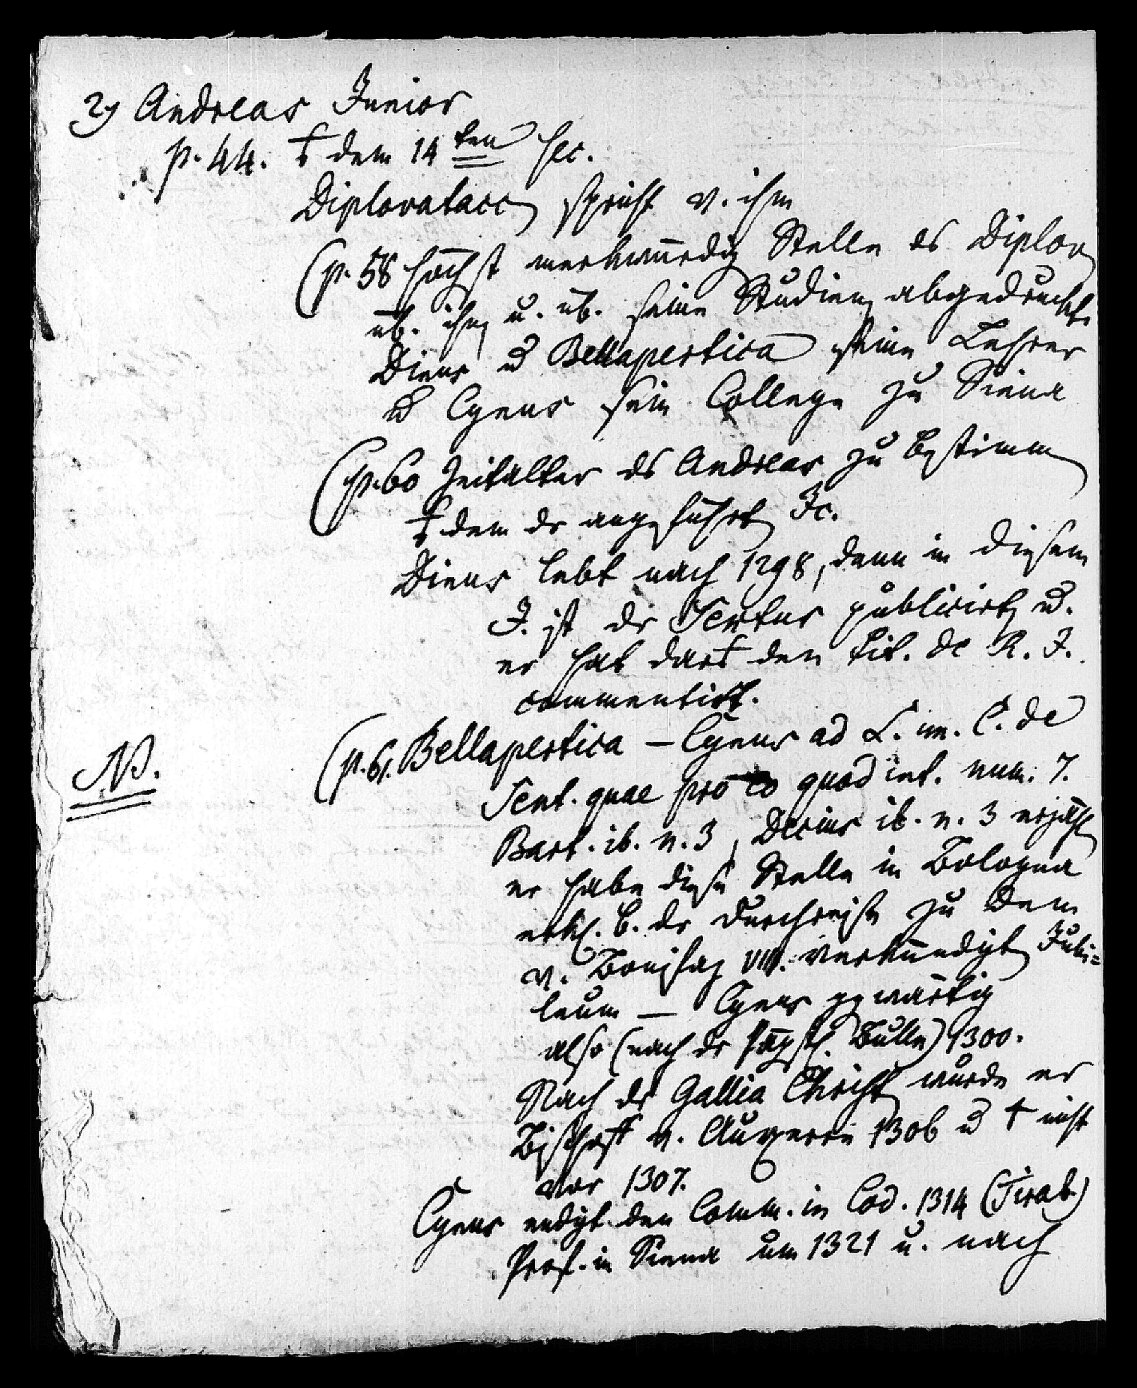 2) Andreas Junior
p. 44. † dem 14ten sec.
Diplovatacc spricht v. ihm
(p. 58 höchst merkwürdig Stelle ds Diplov
üb. ihn u. üb. seine Studien abgedruckt.
Dinus u Bellapertica seine Lehrer
u Cynus sein College zu Siena
(p. 60 Zeitalter ds Andreas zu bestimm
† dem dr angeführt Jc.
Dinus lebt nach 1298, denn in diesem
J. ist dr Sextus publicirt u.
er hat dort den tit. de R. J.
commentirt.
NB.
(p. 61. Bellapertica – Cynus ad L. un. C. de
Sent. quae pro eo quod int. num. 7.
Bart. ib. n. 3, Decius ib. n. 3 erzählt
er habe diese Stelle in Bologna
erkl. b. dr Durchreise zu dem
v. Bonifaz VIII. verkündigt Jubi=
leum — Cynus ggwärtig
also (nach dr päpstl. Bulle) 1300.
Nach dr Gallia Christ wurde er
Bischoff v. Auxerre 1306 u † nicht
vor 1307.
Cynus endigt den Comm. in Cod. 1314 (Tirab.)
Prof. in Siena um 1321 u. nach